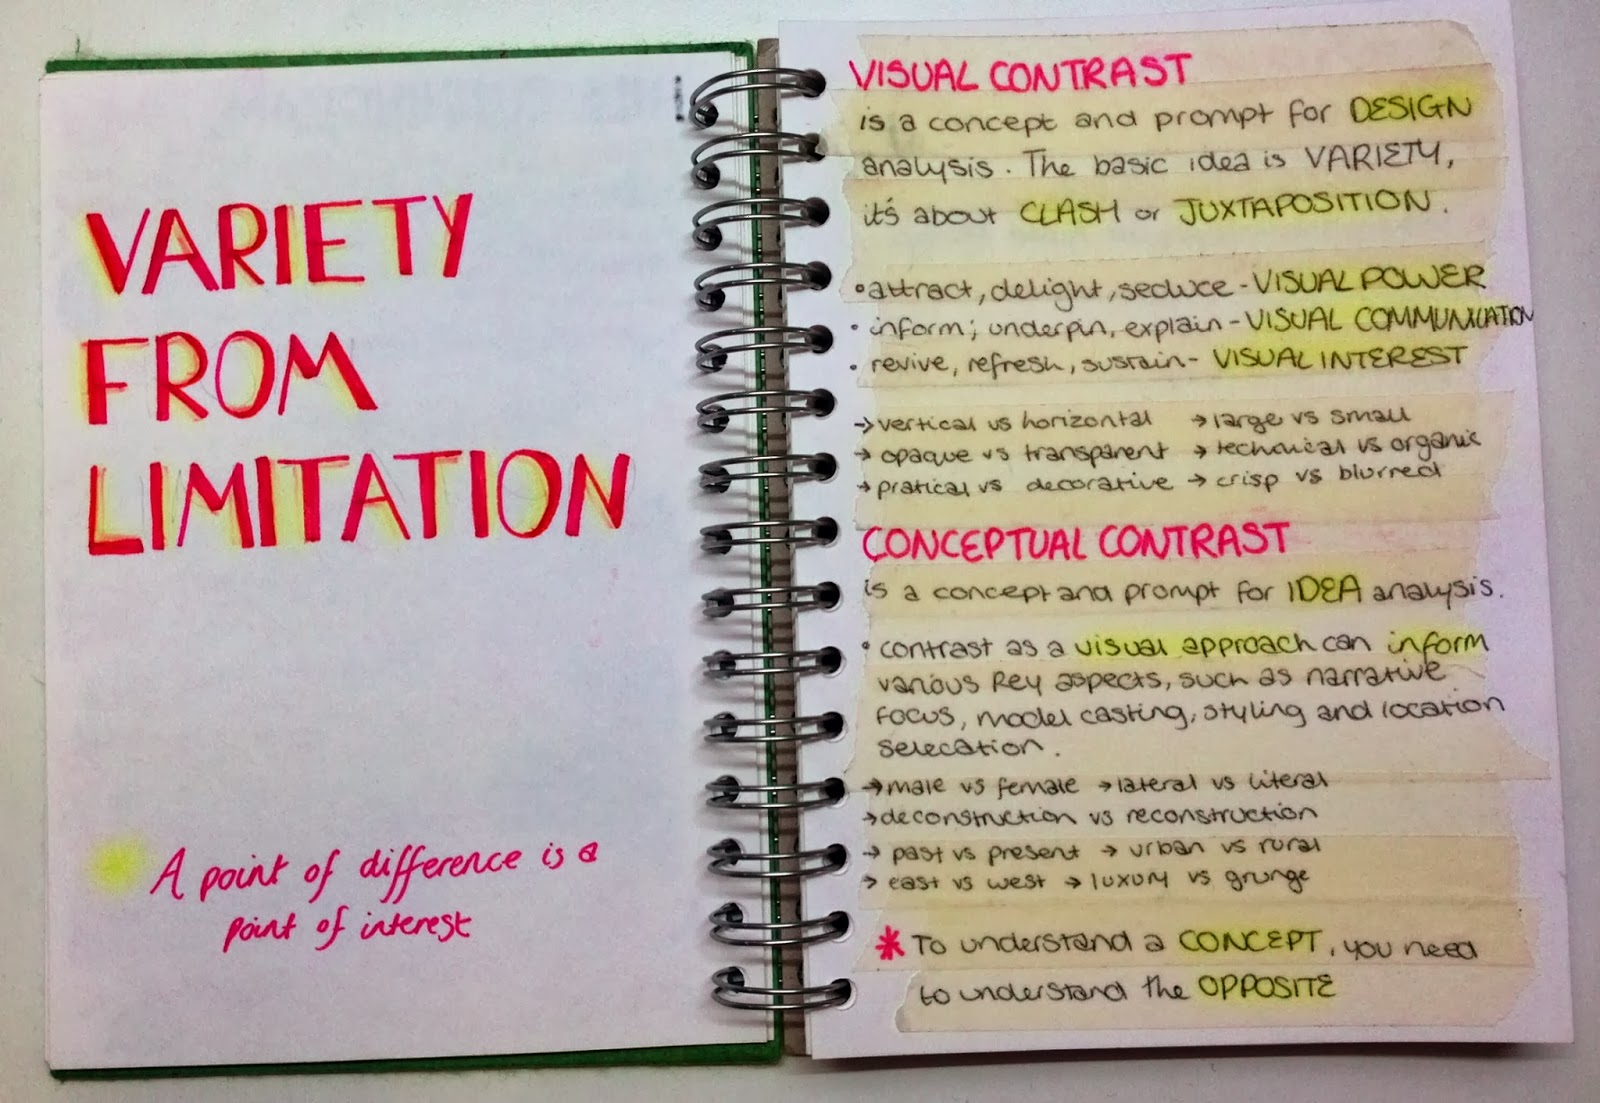 VARIETY
FROM
LIMITATION
A point of difference is a
point of interest
VISUAL CONTRAST
is a concept and prompt for DESIGN
analysis. The basic idea is VARIETY,
it's about CLASH or JUXTAPOSITION.
• attract, delight, seduce - VISUAL POWER
• inform; underpin, explain - VISUAL COMMUNICATION
• revive, refresh, sustain - VISUAL INTEREST
→ vertical vs horizontal → large vs small
→ opaque vs transparent → technical vs organic
→ pratical vs decorative → crisp vs blurred
CONCEPTUAL CONTRAST
is a concept and prompt for IDEA analysis.
• contrast as a visual approach can inform
various key aspects, such as narrative
focus, model casting, styling and location
selecation.
→ male vs female → lateral vs literal
→ deconstruction vs reconstruction
→ past vs present → urban vs rural
→ east vs west → luxury vs grunge
* To understand a CONCEPT, you need
to understand the OPPOSITE